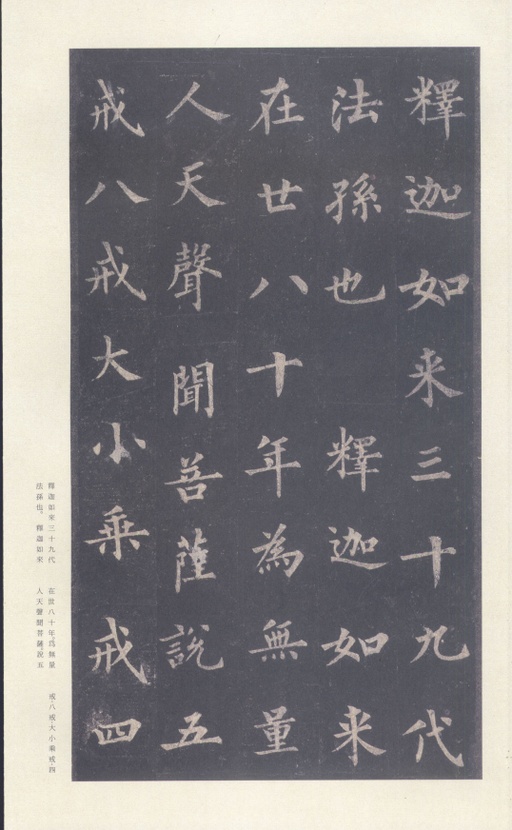 釋迦如来三十九代
法孫也釋迦如来
在世八十年為無量
人天聲聞菩薩說五
戒八戒大小乗戒四
釋迦如來三十九代
法孫也。釋迦如來
在世八十年。爲無量
人天聲聞菩薩。說五
戒・八戒・大小乘戒・四